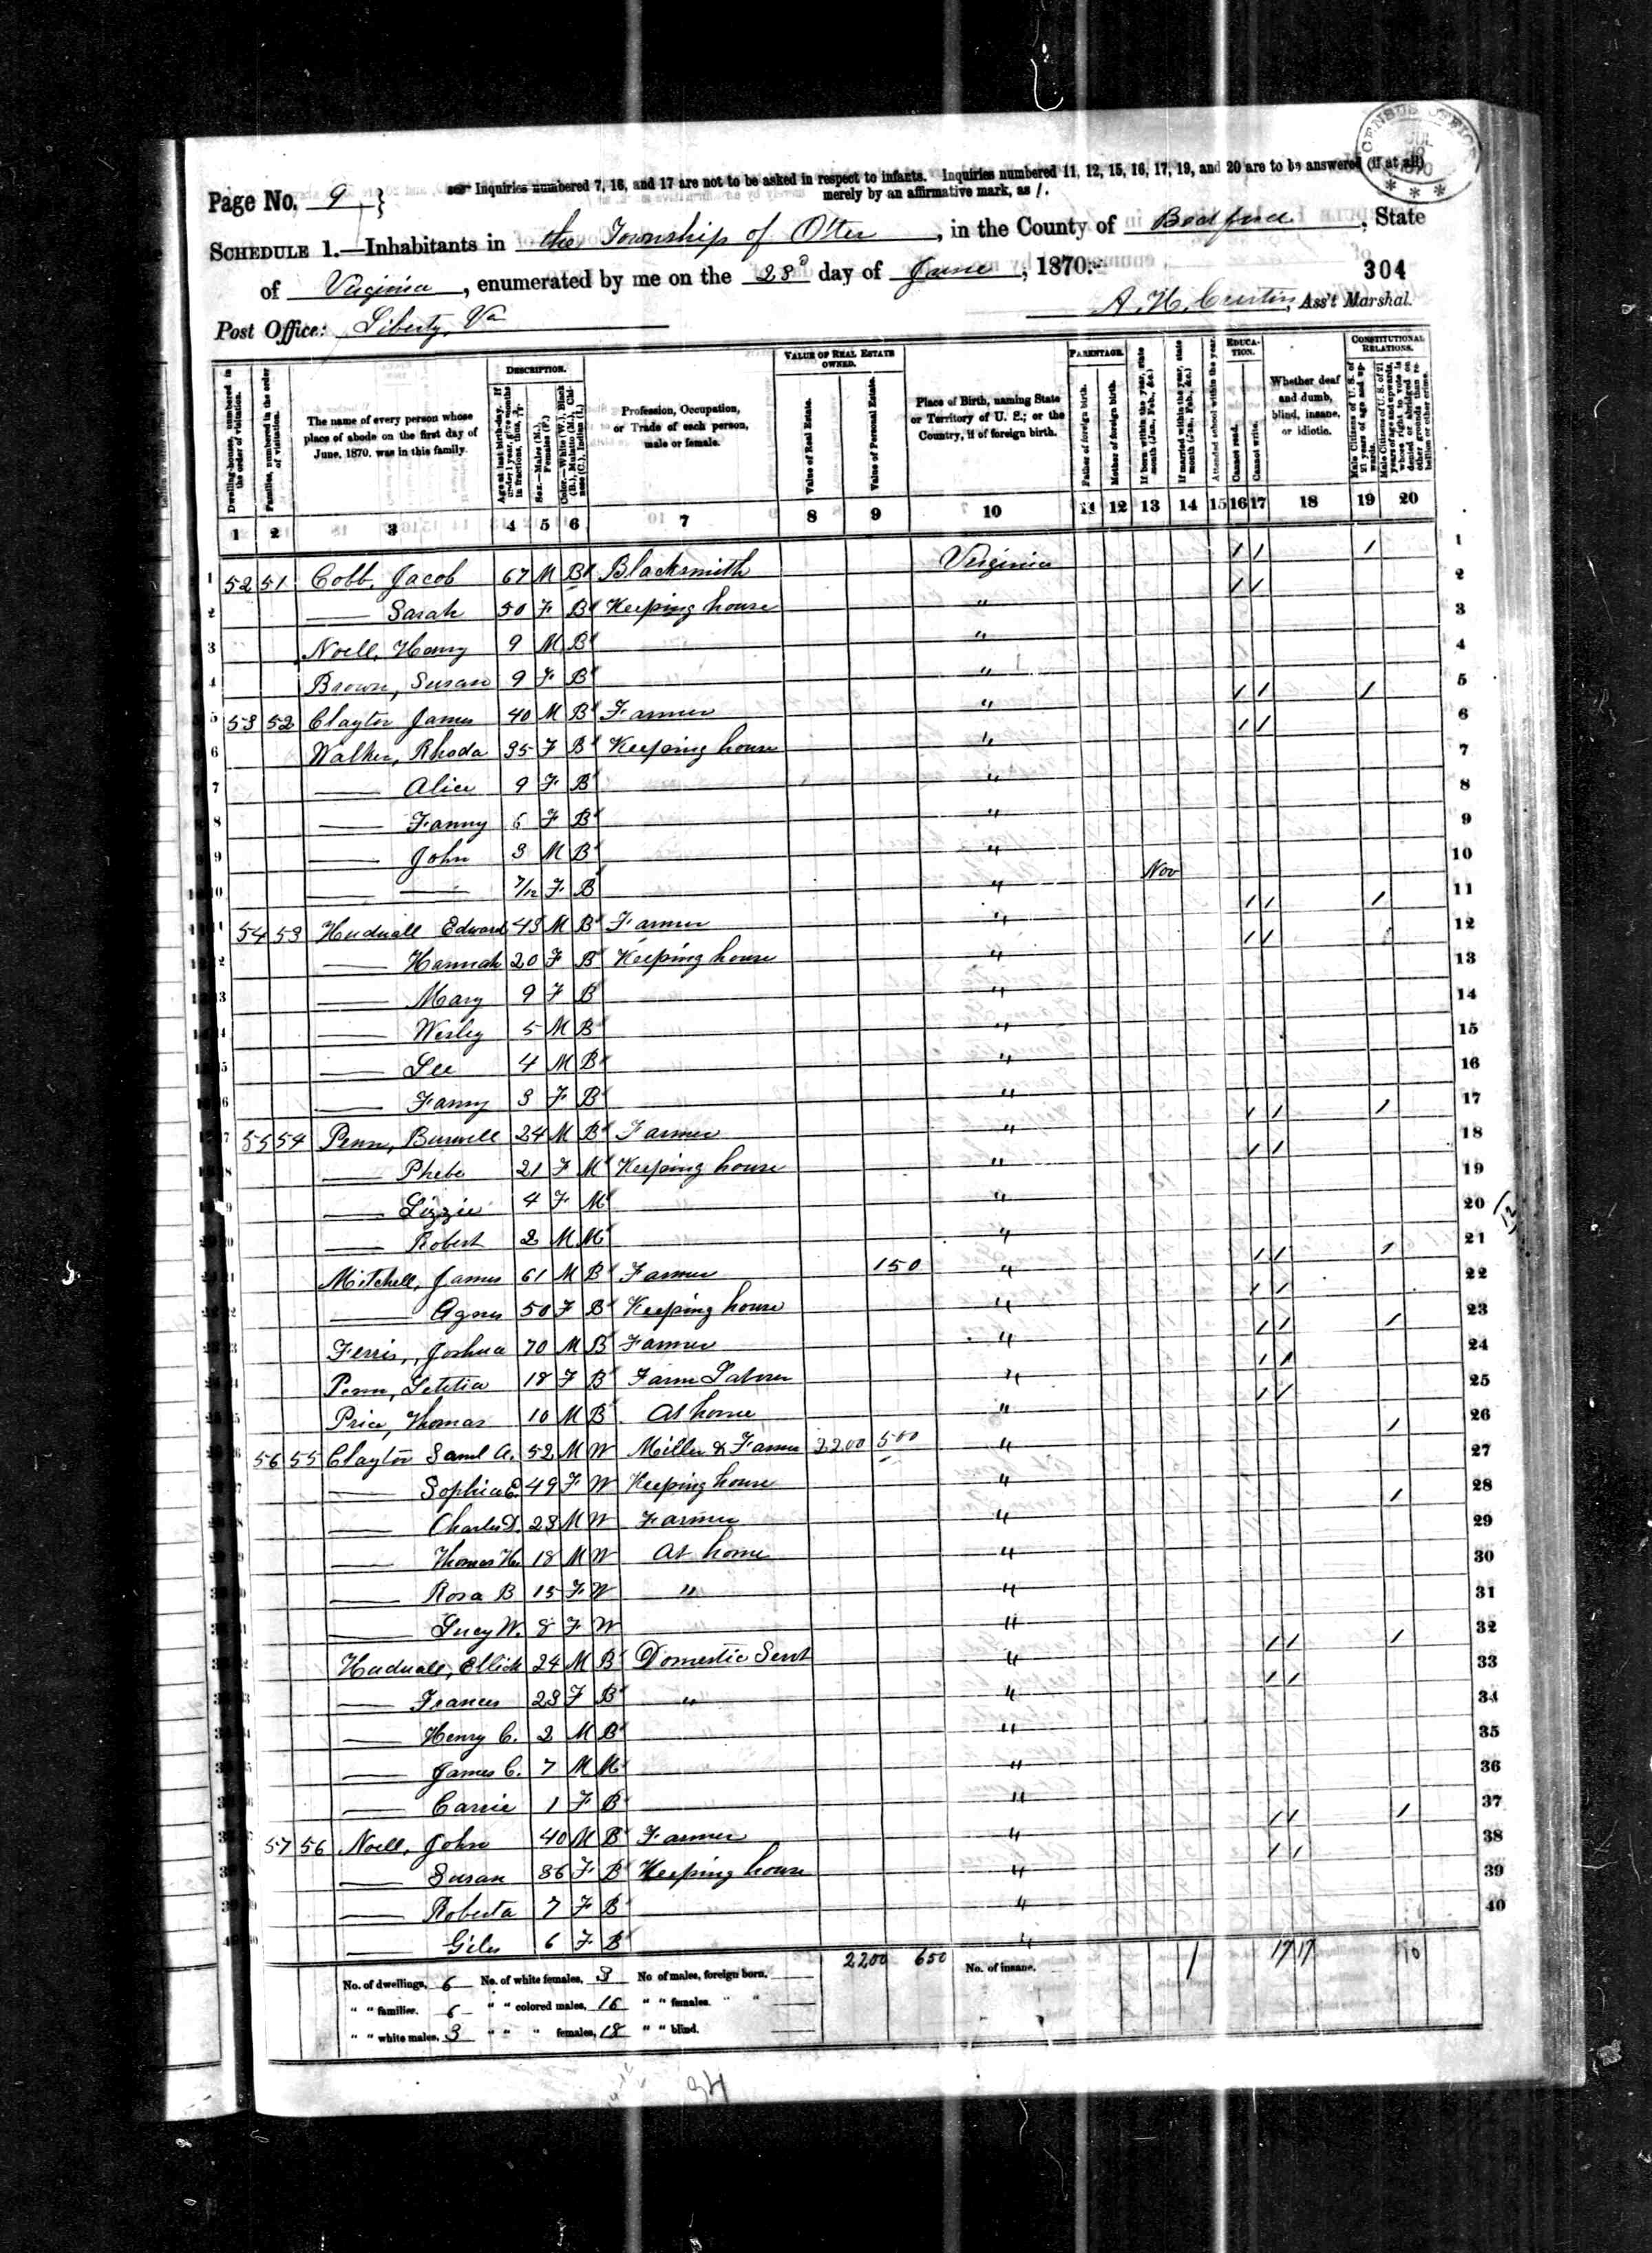 Page No. 9
Inquiries numbered 7, 16, and 17 are not to be asked in respect to infants. Inquiries numbered 11, 12, 15, 16, 17, 19, and 20 are to be answered (if at all)
merely by an affirmative mark, as /.
SCHEDULE 1.—Inhabitants in the Township of Otter, in the County of Bedford, State
of Virginia, enumerated by me on the 28 day of June, 1870.
304
Post Office: Liberty, Va
A. H. Ass't Marshal.
Dwelling-houses, numbered in the order of visitation.
Families, numbered in the order of visitation.
The name of every person whose place of abode on the first day of June, 1870, was in this family.
DESCRIPTION.
Age at last birth-day. If under 1 year, give months in fractions, thus, 3/12.
Sex.—Males (M.), Females (F.)
Color.—White (W.), Black (B.), Mulatto (M.), Chinese (C.), Indian (I.)
Profession, Occupation, or Trade of each person, male or female.
VALUE OF REAL ESTATE OWNED.
Value of Real Estate.
Value of Personal Estate.
Place of Birth, naming State or Territory of U. S.; or the Country, if of foreign birth.
PARENTAGE.
Father of foreign birth.
Mother of foreign birth.
If born within the year, state month (Jan., Feb., &c.)
If married within the year, state month (Jan., Feb., &c.)
Attended school within the year.
EDUCATION.
Cannot read.
Cannot write.
Whether deaf and dumb, blind, insane, or idiotic.
CONSTITUTIONAL RELATIONS.
Male Citizens of U. S. of 21 years of age and upwards.
Male Citizens of U. S. of 21 years of age and upwards, whose right to vote is denied or abridged on other grounds than rebellion or other crime.
1 2 3 4 5 6 7 8 9 10 11 12 13 14 15 16 17 18 19 20
1 52 51 Cobb, Jacob 67 M B Blacksmith Virginia / / / 1
2 — Sarah 50 F B Keeping house " / / 2
3 Noell, Henry 9 M B " 3
4 Brown, Susan 9 F B " 4
5 53 52 Claytor James 40 M B Farmer " / / / 5
6 Walker, Rhoda 35 F B Keeping house " / / 6
7 — Alice 9 F B " 7
8 — Fanny 6 F B " 8
9 — John 3 M B " 9
10 — — 7/12 F B " Nov 10
11 54 53 Hudnall Edward 43 M B Farmer " / / / 11
12 — Hannah 20 F B Keeping house " / / 12
13 — Mary 9 F B " 13
14 — Wesley 5 M B " 14
15 — Lee 4 M B " 15
16 — Fanny 3 F B " 16
17 55 54 Penn, Burwell 24 M B Farmer " / / / 17
18 — Phebe 21 F M Keeping house " / / 18
19 — Lizzie 4 F M " 19
20 — Robert 2 M M " 20
21 Mitchell, James 61 M B Farmer 150 " / / / 21
22 — Agnes 50 F B Keeping house " / / 22
23 Ferris, Joshua 70 M B Farmer " / / / 23
24 Penn, Letitia 18 F B Farm Laborer " / / 24
25 Price, Thomas 10 M B At home " / / 25
26 56 55 Claytor Saml A. 52 M W Miller & Farmer 2200 500 " / 26
27 — Sophia E. 49 F W Keeping house " 27
28 — Charles D. 23 M W Farmer " / 28
29 — Thomas H. 18 M W At home " 29
30 — Rosa B 15 F W " " 30
31 — Lucy W. 8 F W " 31
32 Hudnall, Ellick 24 M B Domestic Servt " / / / 32
33 — Frances 23 F B " " / / 33
34 — Henry C. 2 M B " 34
35 — James C. 7 M M " 35
36 — Carrie 1 F B " 36
37 57 56 Noell, John 40 M B Farmer " / / / 37
38 — Susan 36 F B Keeping house " / / 38
39 — Roberta 7 F B " 39
40 — Giles 6 F B " 40
No. of dwellings, 6 No. of white females, 3 No of males, foreign born, 2200 650 No. of insane. 1 17 17 10
" " families. 6 " " colored males, 16 " " females. " "
" " white males, 3 " " " females, 18 " " blind.